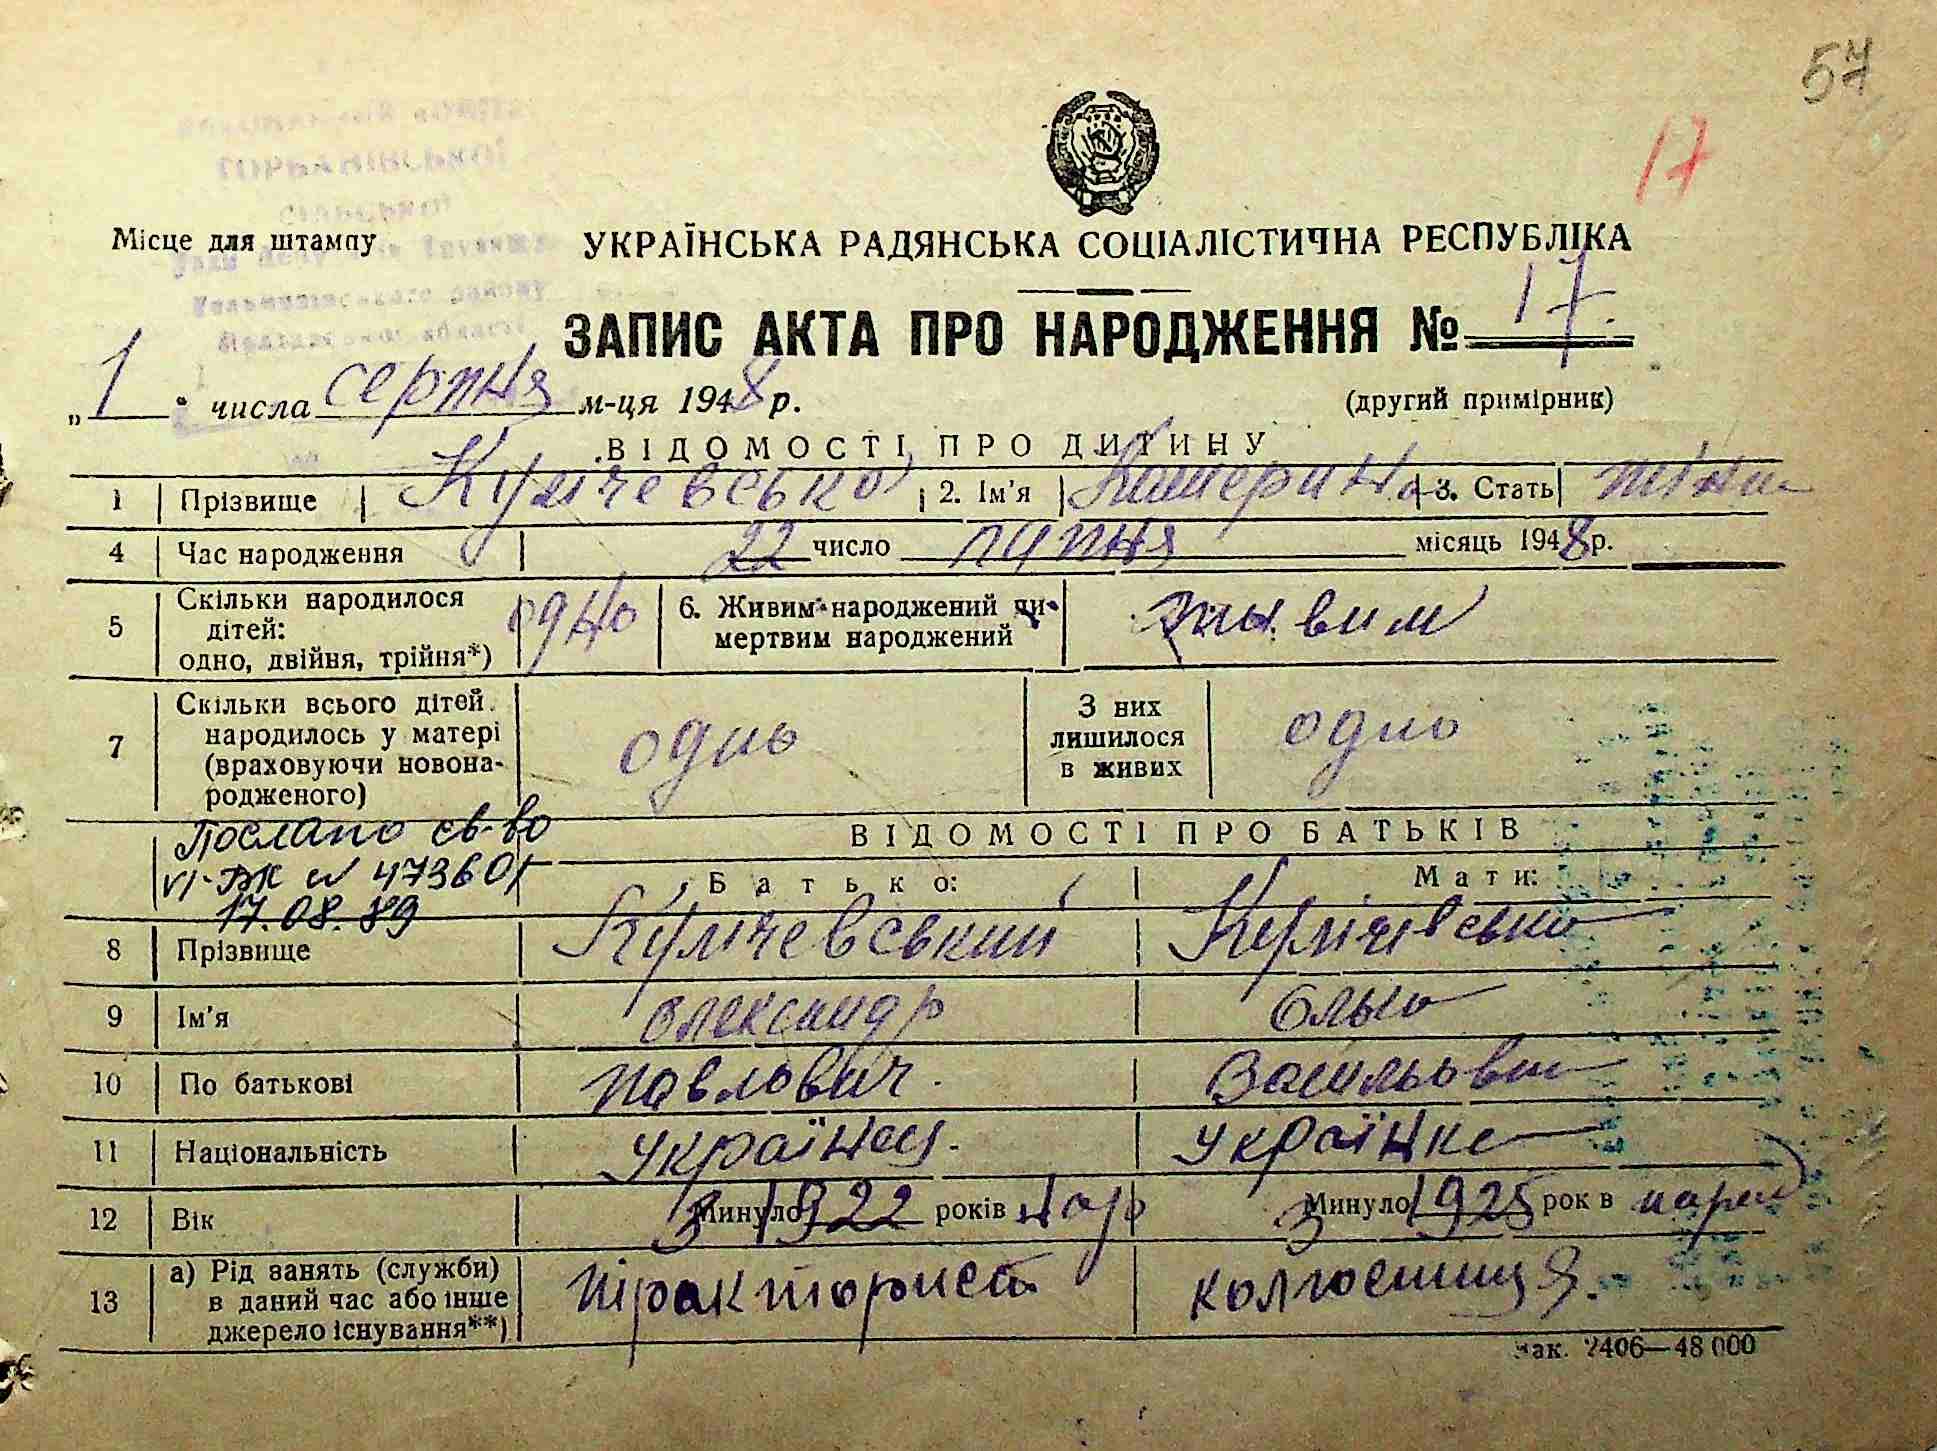 57
17
ГОРБАНІВСЬКОЇ
СІЛЬСЬКОЇ
Місце для штампу
УКРАЇНСЬКА РАДЯНСЬКА СОЦІАЛІСТИЧНА РЕСПУБЛІКА
ЗАПИС АКТА ПРО НАРОДЖЕННЯ № 17.
„1" числа серпня м-ця 1948 р.
(другий примірник)
ВІДОМОСТІ ПРО ДИТИНУ
1 Прізвище Кулічевська 2. Ім'я Катерина 3. Стать жіноч
4 Час народження 22 число липня місяць 1948 р.
5 Скільки народилося дітей: одно, двійня, трійня*) одно 6. Живим народжений чи мертвим народжений живим
7 Скільки всього дітей народилось у матері (враховуючи новонародженого) одно З них лишилося в живих одно
Послано св-во
VI-ЖК № 473601
17.08.89
ВІДОМОСТІ ПРО БАТЬКІВ
Батько: Мати:
8 Прізвище Кулічевський Кулічевська
9 Ім'я Олександр Ольга
10 По батькові Павлович. Васильовна
11 Національність Українец. Українка
12 Вік З Минуло 1922 років нар З Минуло 1925 рок в народ
13 а) Рід занять (служби) в даний час або інше джерело існування**) тракторист колгоспниця.
Зак. 2406—48 000